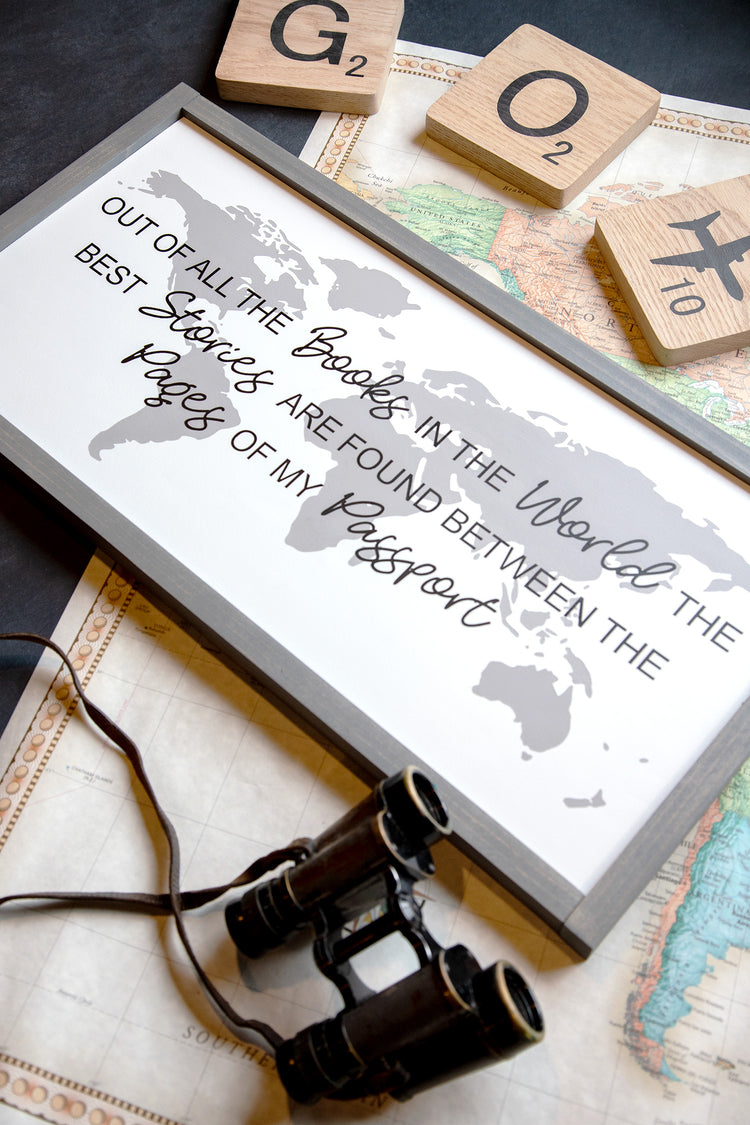 G2
O2
10
OUT OF ALL THE Books IN THE World THE
BEST Stories ARE FOUND BETWEEN THE
Pages OF MY Passport
UNITED STATES
NORT
ARGENTIN
SOUTHE